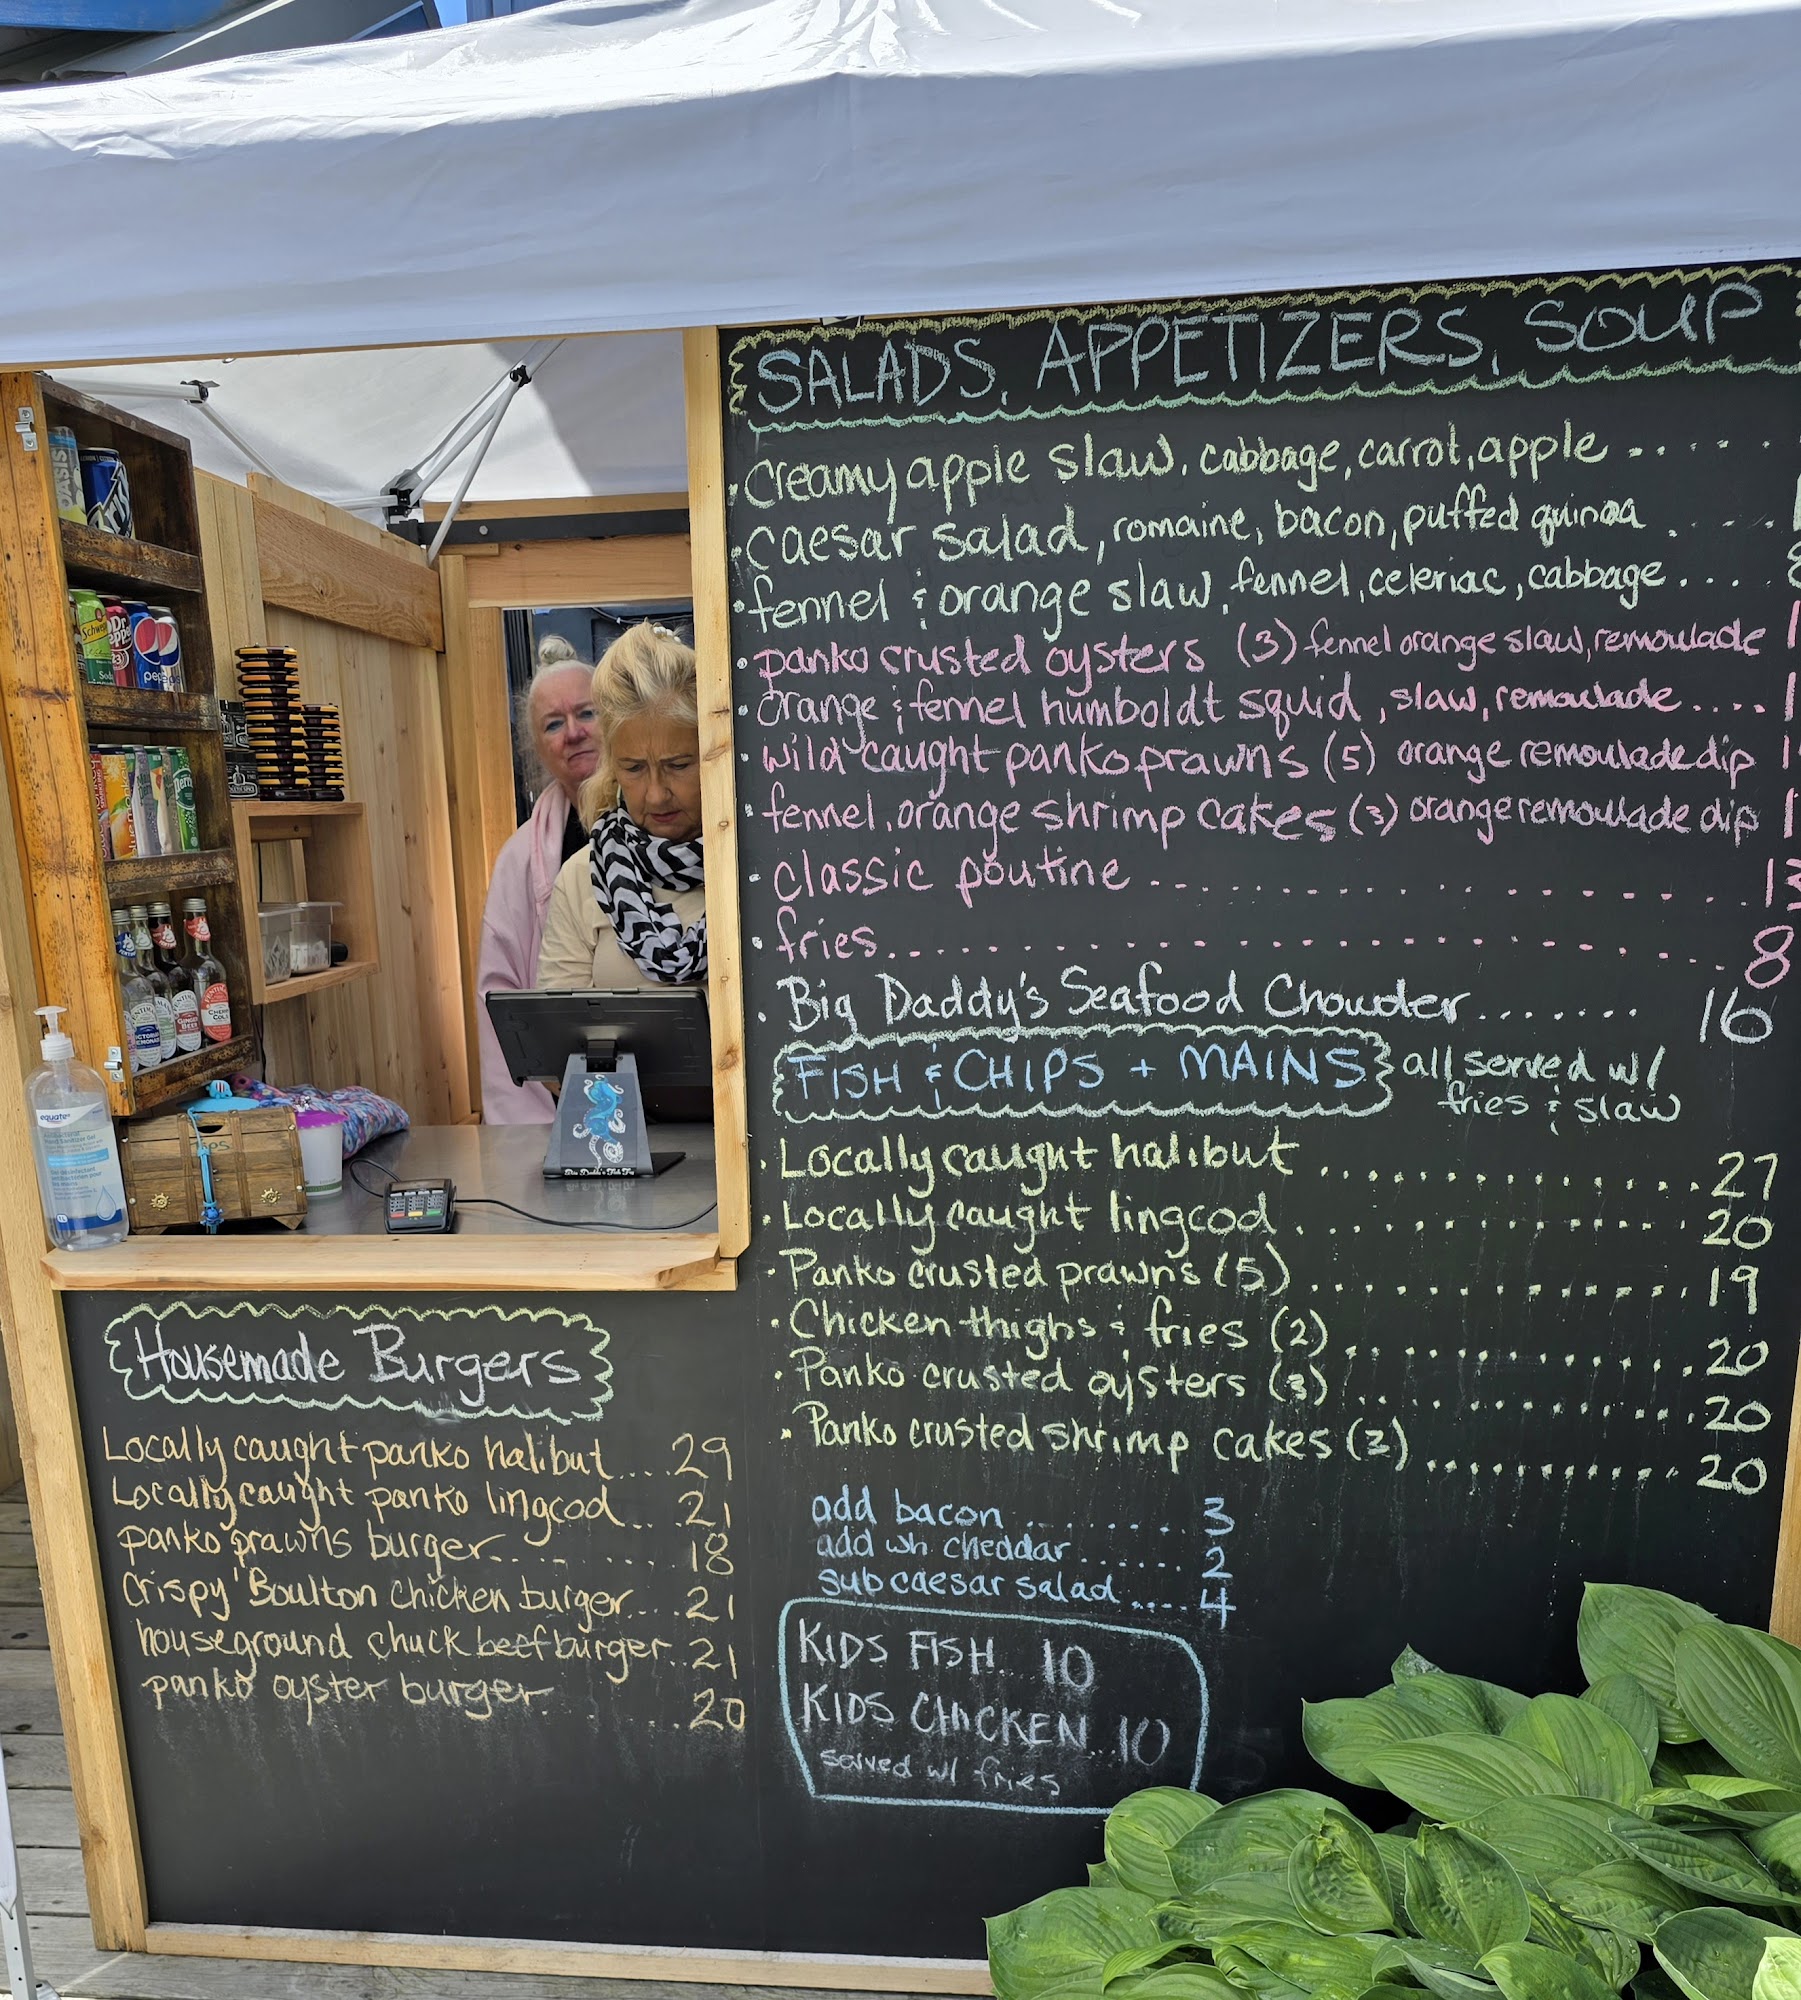 SALADS, APPETIZERS, SOUP
• creamy apple slaw, cabbage, carrot, apple .. . . .
• caesar salad, romaine, bacon, puffed quinoa . . . .
• fennel & orange slaw, fennel, celeriac, cabbage . . . .
• panko crusted oysters (3) fennel orange slaw, remoulade
• orange & fennel humboldt squid, slaw, remoulade ....
• wild caught panko prawns (5) orange remoulade dip
• fennel, orange shrimp cakes (3) orange remoulade dip
• classic poutine .................. 13
• fries .................. 8
• Big Daddy's Seafood Chowder ....... 16
FISH & CHIPS + MAINS all served w/
fries & slaw
• Locally caught halibut .............. 27
• Locally caught lingcod .............. 20
• Panko crusted prawns (5) .............. 19
• Chicken thighs & fries (2) .............. 20
• Panko crusted oysters (3) .............. 20
• Panko crusted shrimp cakes (2) .............. 20
add bacon ......... 3
add wh cheddar ...... 2
sub caesar salad .... 4
KIDS FISH... 10
KIDS CHICKEN... 10
served w/ fries
Housemade Burgers
Locally caught panko halibut .... 29
Locally caught panko lingcod ... 21
panko prawns burger ......... 18
Crispy Boulton chicken burger ... 21
houseground chuck beef burger .. 21
panko oyster burger ....... 20
Schwe
Dr
Pepper
23
pepsi
equate
GINGER
BEER
CHERRY
COLA